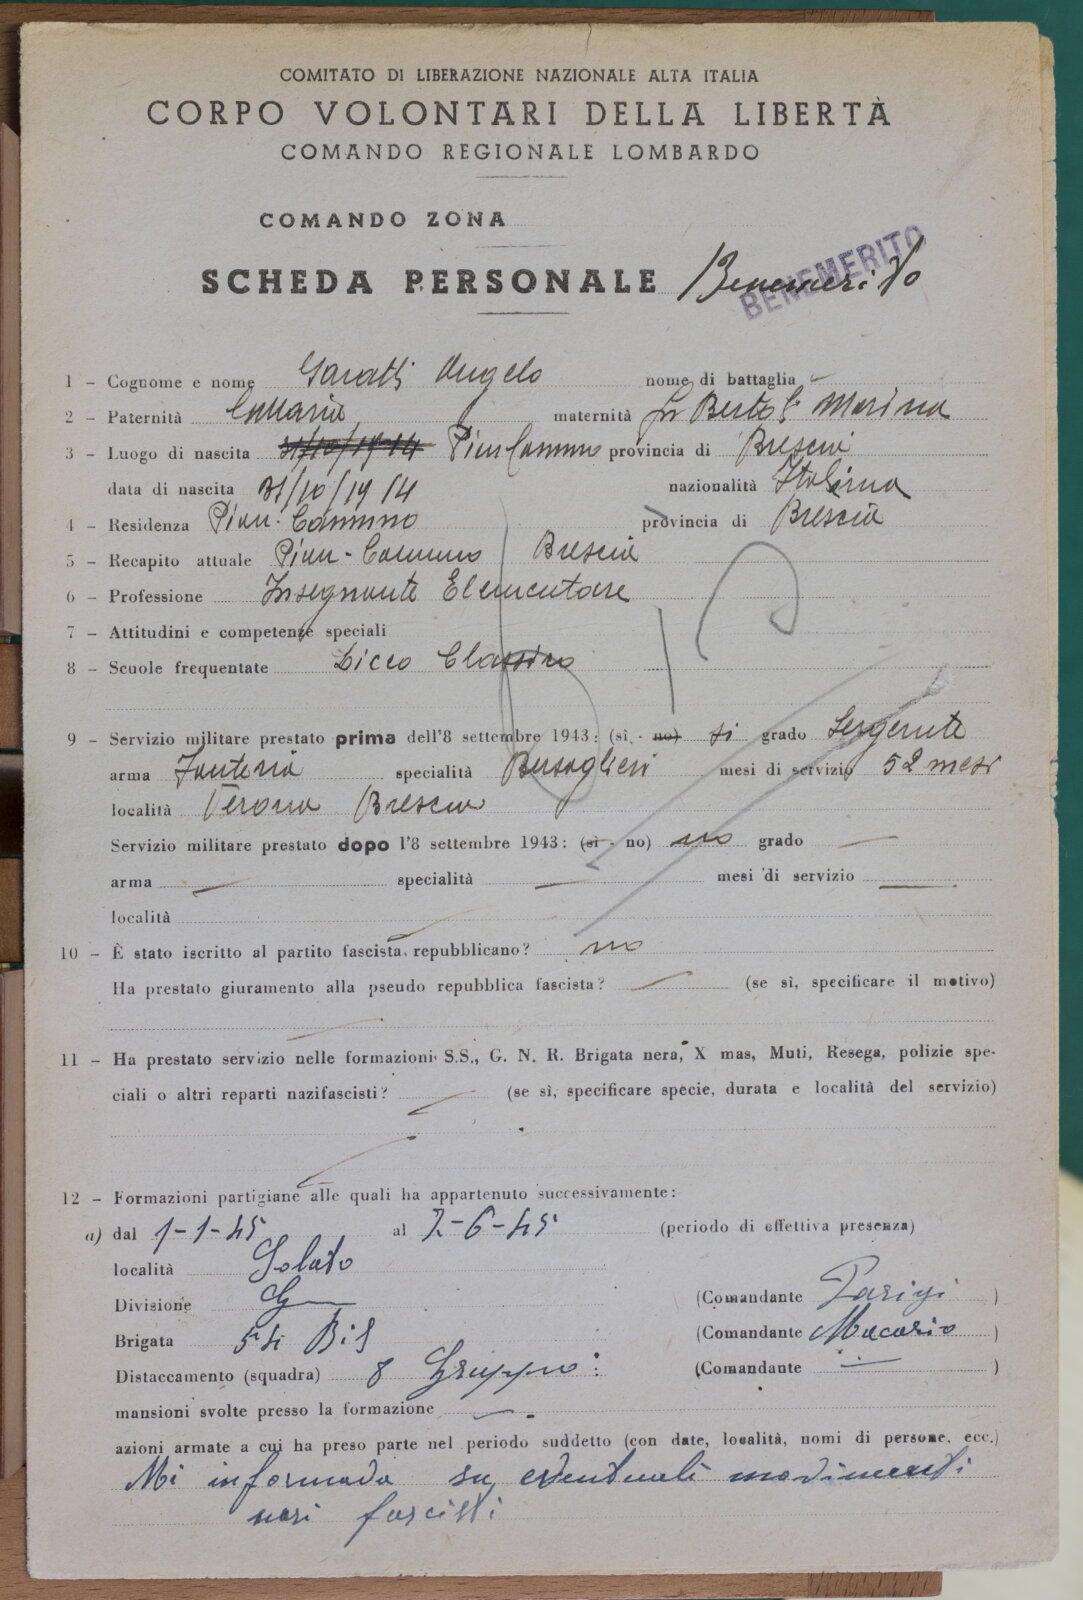 COMITATO DI LIBERAZIONE NAZIONALE ALTA ITALIA
CORPO VOLONTARI DELLA LIBERTÀ
COMANDO REGIONALE LOMBARDO
COMANDO ZONA
SCHEDA PERSONALE Benemerito
BENEMERITO
1 - Cognome e nome Garatti Angelo nome di battaglia -
2 - Paternità maternità fu Bertoli Marina
3 - Luogo di nascita 31/10/1914 Pian Camuno provincia di Brescia
data di nascita 31/10/1914 nazionalità Italiana
4 - Residenza Pian-Camuno provincia di Brescia
5 - Recapito attuale Pian-Camuno Brescia
6 - Professione Insegnante Elementare
7 - Attitudini e competenze speciali
8 - Scuole frequentate Liceo Classico
9 - Servizio militare prestato prima dell'8 settembre 1943: (sì - no) si grado Sergente
arma Fanteria specialità Bersaglieri mesi di servizio 52 mesi
località Verona Brescia
Servizio militare prestato dopo l'8 settembre 1943: (sì - no) no grado —
arma — specialità — mesi di servizio —
località
10 - È stato iscritto al partito fascista repubblicano? no
Ha prestato giuramento alla pseudo repubblica fascista? — (se sì, specificare il motivo)
11 - Ha prestato servizio nelle formazioni S.S., G. N. R. Brigata nera, X mas, Muti, Resega, polizie spe-
ciali o altri reparti nazifascisti? — (se sì, specificare specie, durata e località del servizio)
12 - Formazioni partigiane alle quali ha appartenuto successivamente:
a) dal 1-1-45 al 2-6-45 (periodo di effettiva presenza)
località Solato
Divisione (Comandante Parigi )
Brigata 54 Bis (Comandante Macario )
Distaccamento (squadra) 8 Gruppo: (Comandante — )
mansioni svolte presso la formazione —
azioni armate a cui ha preso parte nel periodo suddetto (con date, località, nomi di persone, ecc.)
Mi informava su eventuali movimenti
nazi fascisti